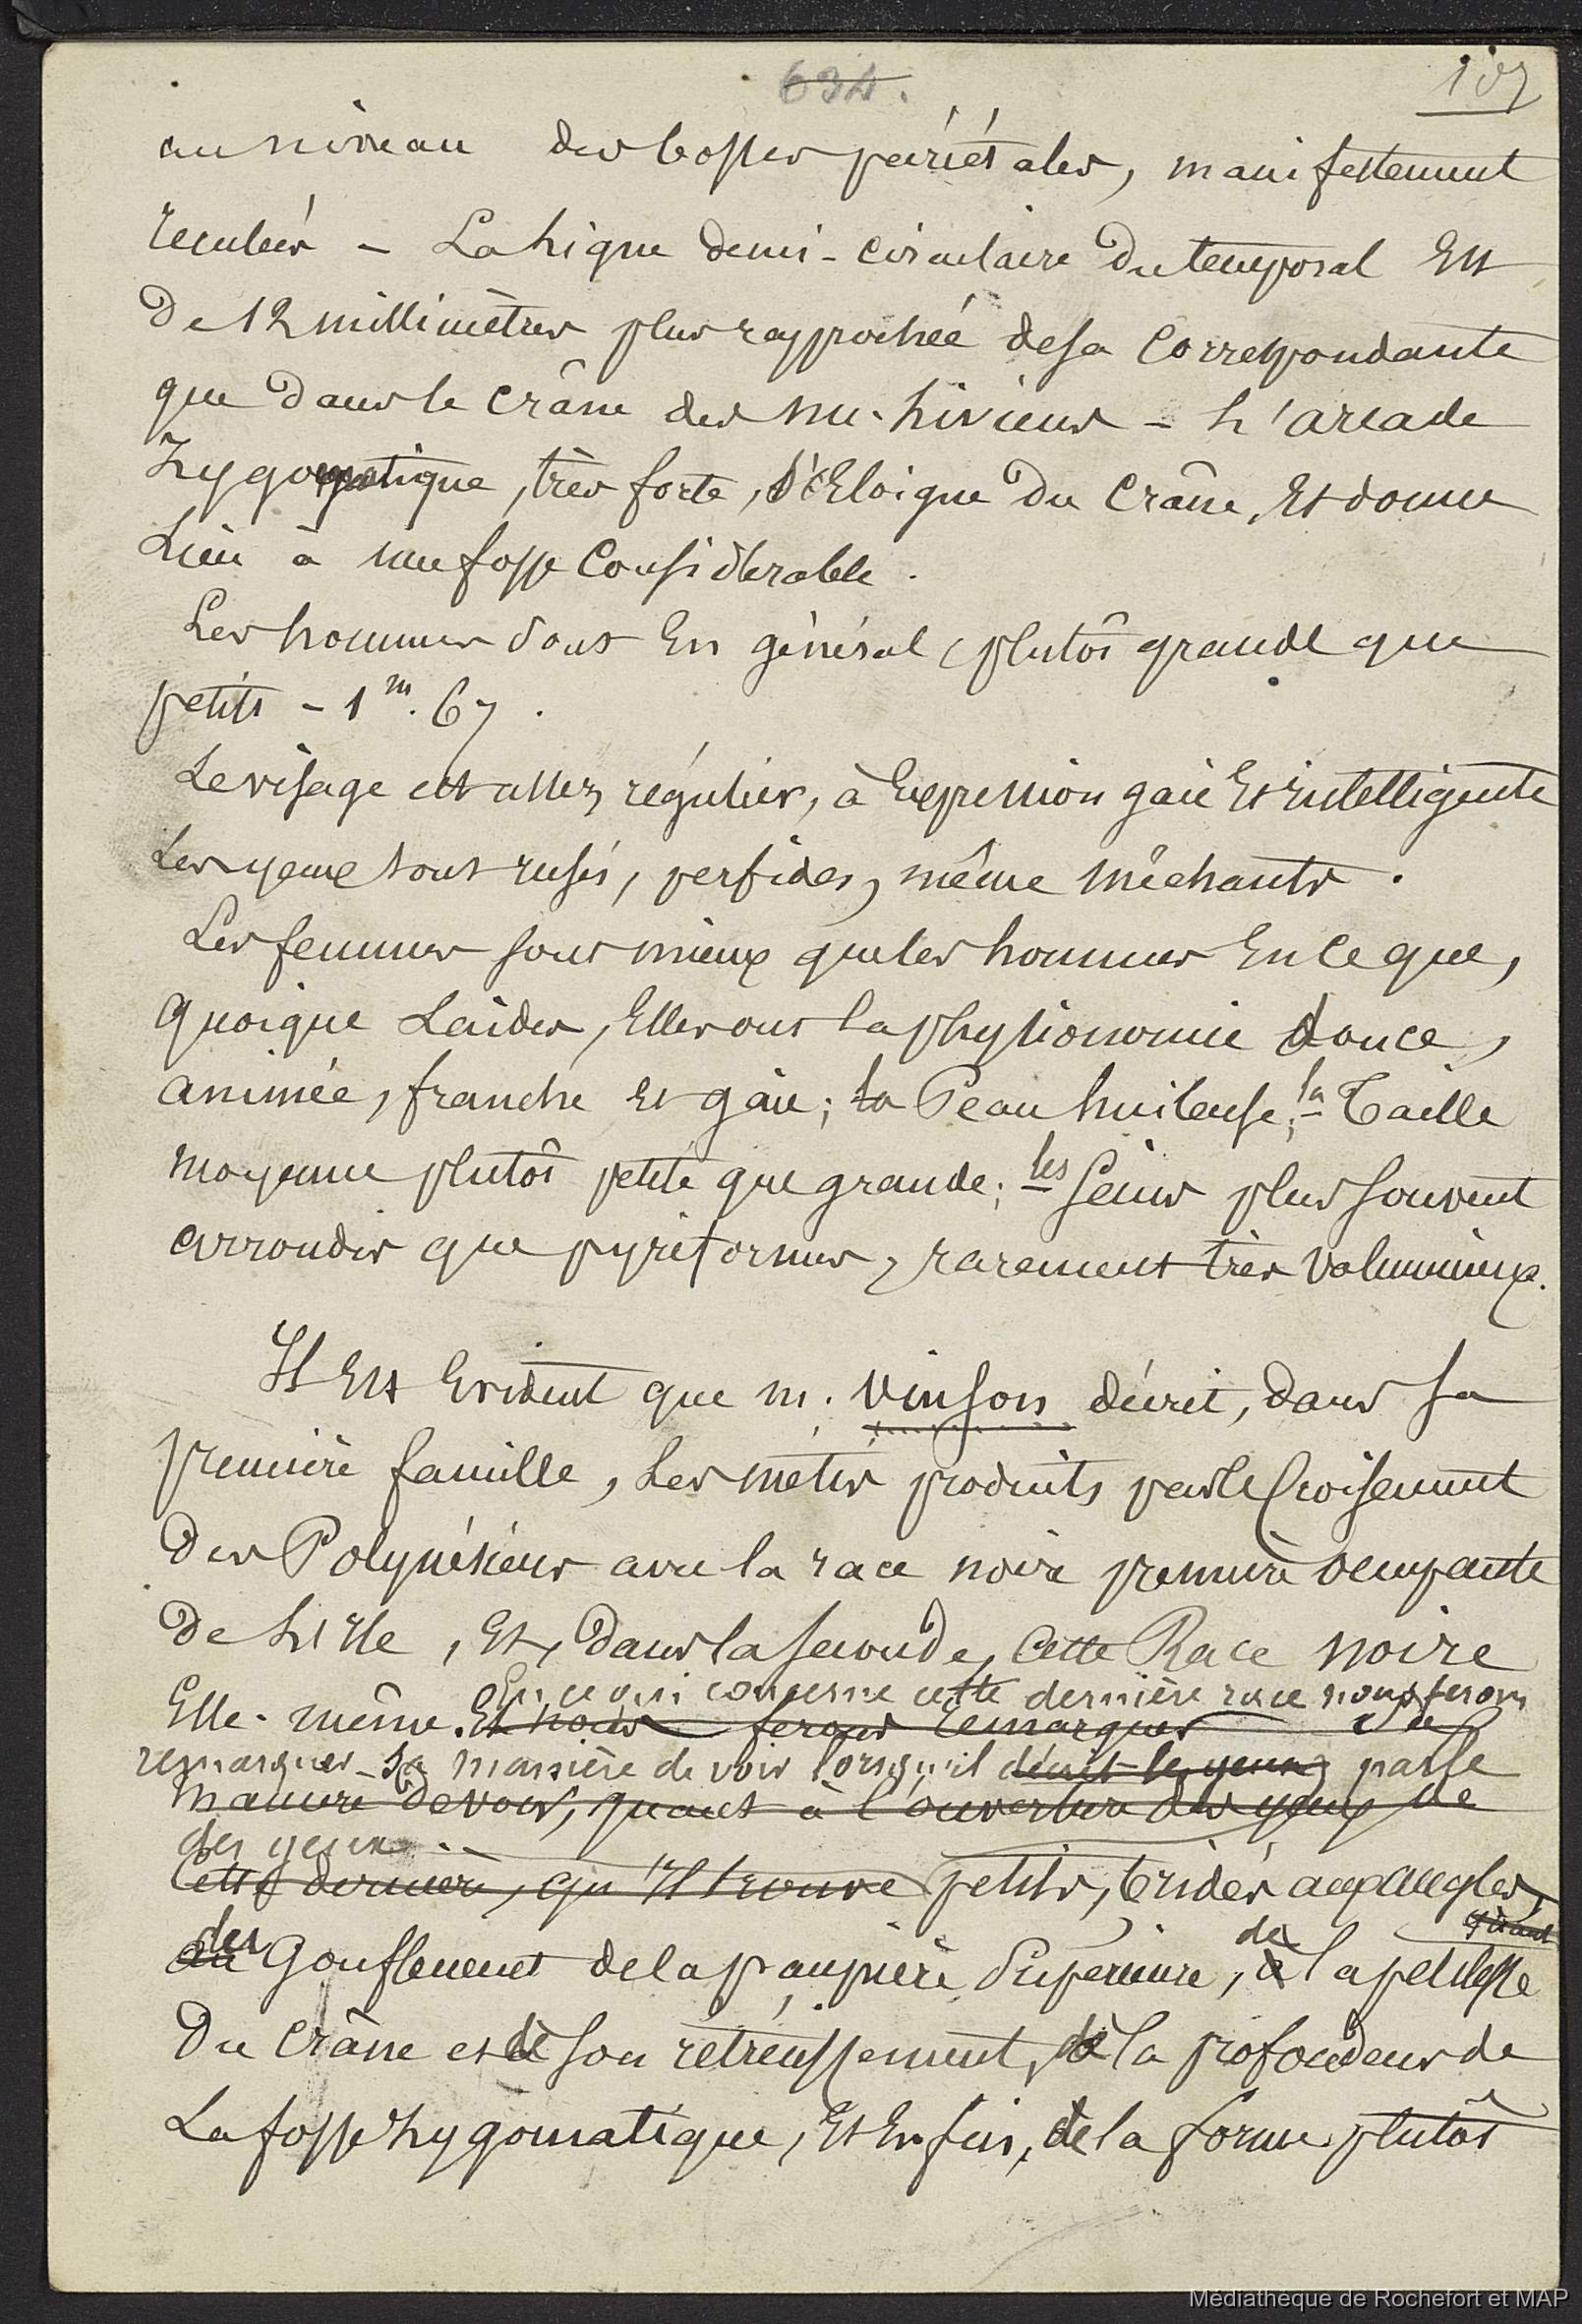 634.
107
au niveau des bosses pariétales, manifestement
reculées - La ligne demi-circulaire du temporal Est
De 12 millimètres plus rapprochée de sa Correspondante
que dans le Crâne des nu-hiviens - L'arcade
Zygomatique, très forte, s'Eloigne du Crâne, Et donne
Lieu à une fosse Considérable.
Les hommes sont En général, plutôt grands que
petits - 1m. 67.
Le visage est assez régulier, à Expression gaie Et intelligente
Les yeux sont rusés, perfides, même méchants.
Les femmes sont mieux que les hommes En ce que,
quoique Laides, Elles ont la physionomie douce,
animée, franche Et gaie; la Peau huileuse; la Taille
moyenne plutôt petite que grande; les Seins plus souvent
arrondis que pyriformes, rarement très volumineux.
Il Est Evident que m. Vinson décrit, dans sa
première famille, Les métis produits par le Croisement
Des Polynésiens avec la race noire première occupante
De L'Ile, Et, Dans la seconde, Cette Race noire
En ce qui concerne cette dernière race nous ferons
Elle-même. Et nous ferons remarquer sa
remarquer sa manière de voir lorsqu'il décrit les yeux parle
manière de voir, quant à l'ouverture des yeux de
des yeux
Cette dernière, qu'Il trouve petits, bridés aux angles,
quant
du Gonflement de la paupière Supérieure, de la petitesse
Du Crâne et de son rétrécissement, de la profondeur de
La fosse zygomatique, Et Enfin, de la forme plutôt
Médiathèque de Rochefort et MAP